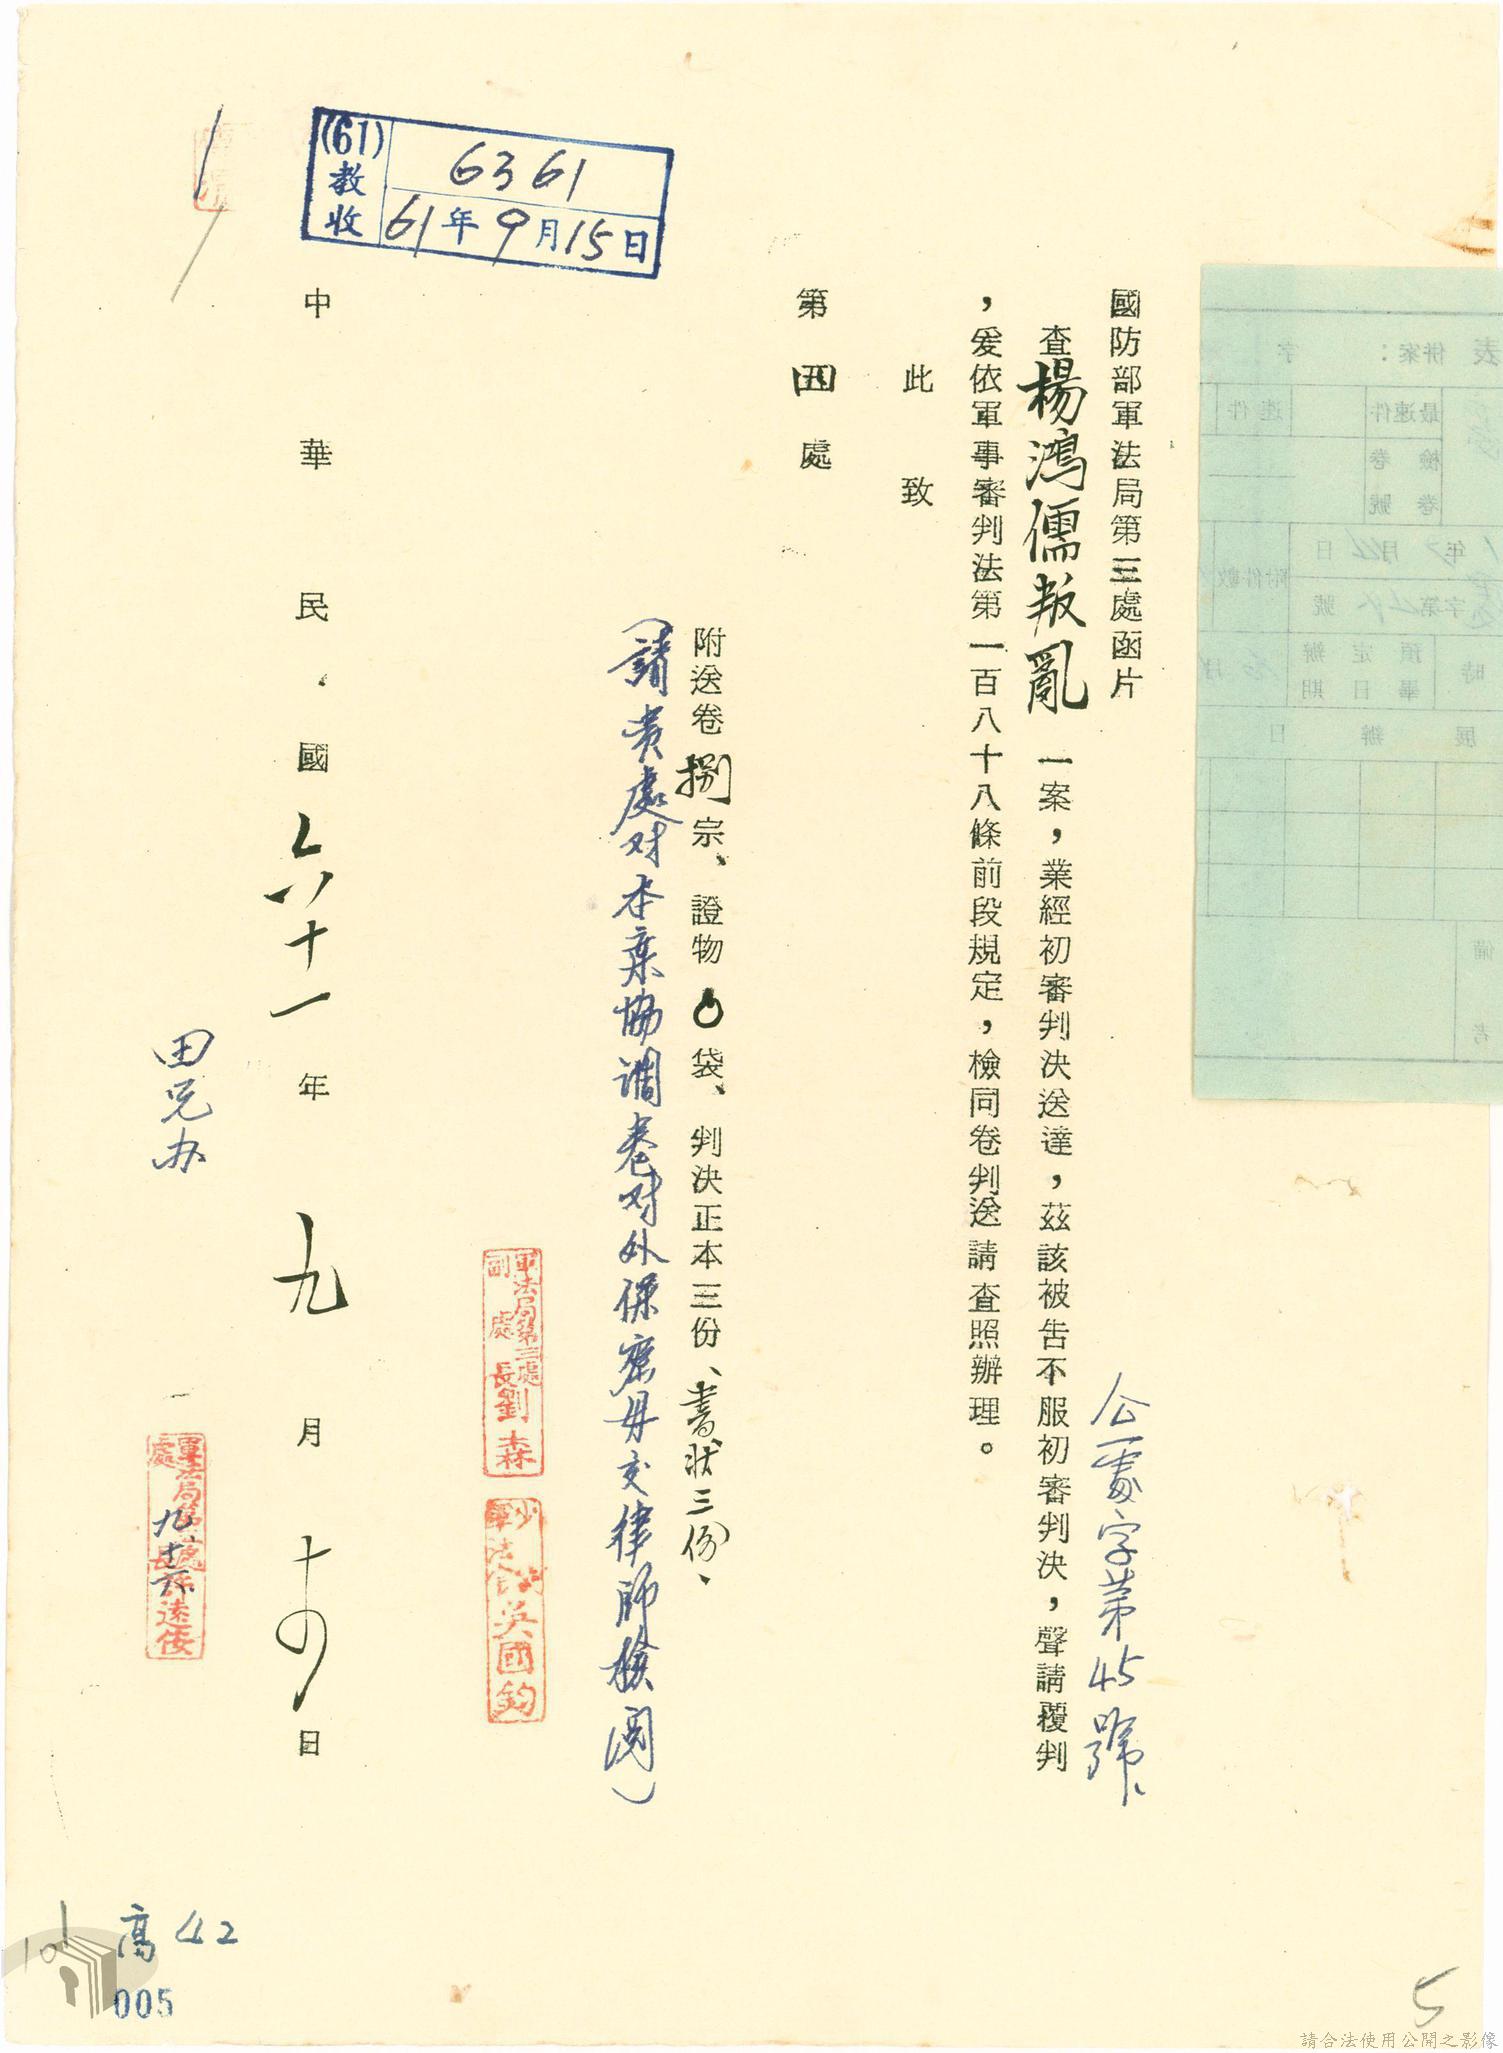 國防部軍法局第三處函片
仝處字第45號
查楊鴻儒叛亂一案，業經初審判決送達，茲該被告不服初審判決，聲請覆判
，爰依軍事審判法第一百八十八條前段規定，檢同卷判送請查照辦理。
此致
第四處
附送卷捌宗、證物0袋、判決正本三份、書狀三份、
（請貴處对本案協調卷对外保密毋交律師檢閱）
軍法局第三處
副處長劉森
英國鈞
中華民國六十一年九月十四日
田兄办
軍法局第
處長
九、十六
(61)
教收
6361
61年9月15日
表
併案：
字
最速件
速件
檢卷
卷號
年
月
日
附件數
字第
號
時
預定辦畢日期
展辦
日
備考
高42
005
5
請合法使用公開之影像